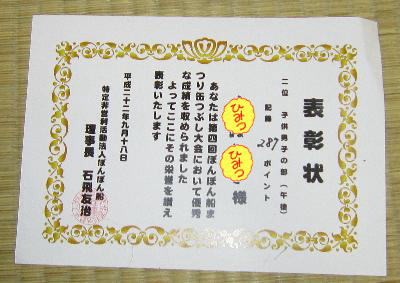 表彰状
二位 子供男子の部(午後)
記録 287 ポイント
ひみつ
ひみつ 様
あなたは第四回ぽんぽん船ま
つり缶つぶし大会において優秀
な成績を収められました
よってここにその栄誉を讃え
表彰いたします
平成二十二年九月十八日
特定非営利活動法人ぽんぽん船
理事長 石飛友治